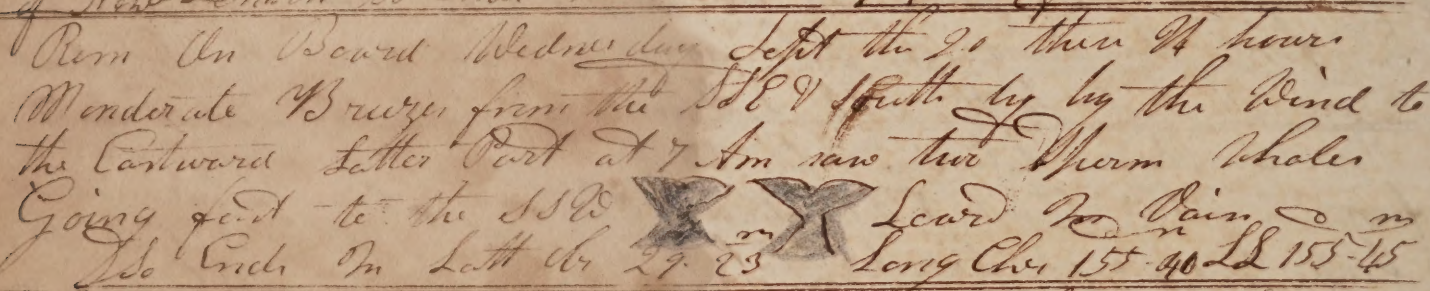 of New London
Rem On Board Wednesday Sept the 20 these 24 hours
Monderate Breezes from the SSE & South by by the Wind to
the Eastward Latter Part at 7 Am saw two Sperm Whales
Going fast to the SSW Loard In Vain
So Ends In Latt by 29-23 m Long Chr 155-40 m LL 155-45 m